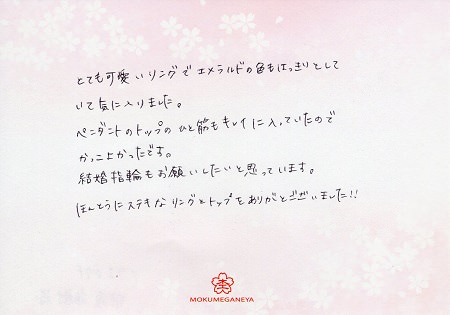 とても可愛いリングでエメラルドの色もはっきりとして
いて気に入りました。
ペンダントのトップのひと筋もキレイに入っていたので
かっこよかったです。
結婚指輪もお願いしたいと思っています。
ほんとうにステキなリングとトップをありがとうございました!!
MOKUMEGANEYA